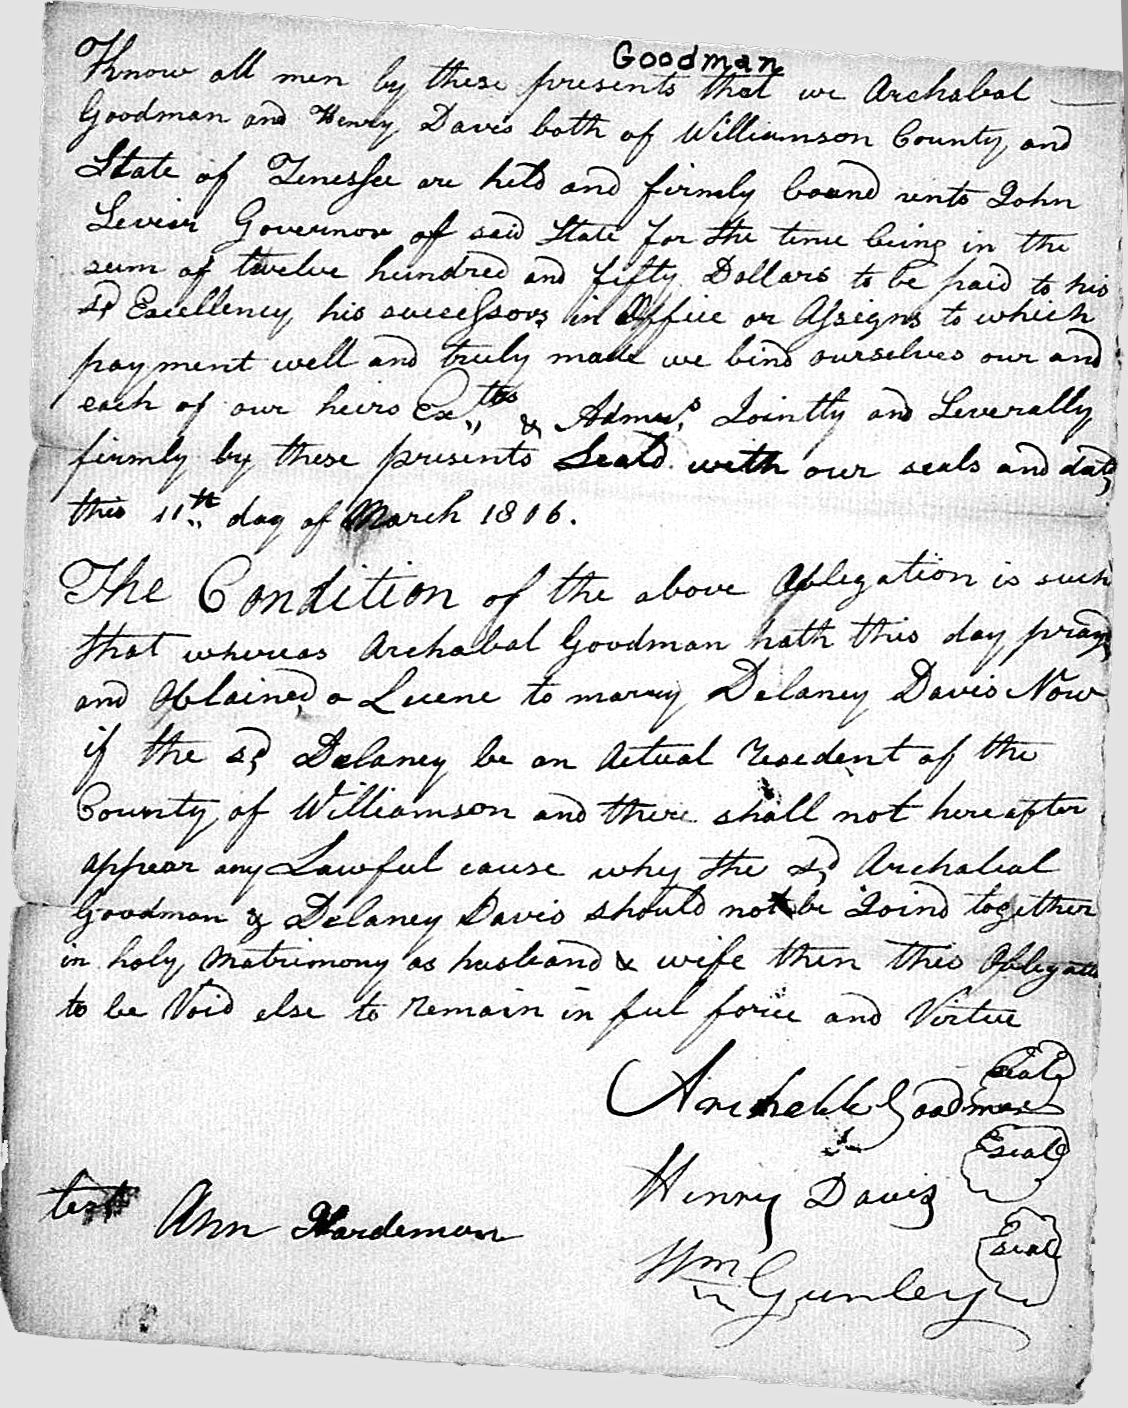 Goodman
Know all men by these presents that we Archabal
Goodman and Henry Davis both of Williamson County and
State of Tenessee are held and firmly bound unto John
Sevier Governor of said State for the time being in the
sum of twelve hundred and fifty Dollars to be paid to his
sd Excellency his successors in Office or Assigns to which
payment well and truly made we bind ourselves our and
each of our heirs & Admrs Jointly and Severally
firmly by these presents Seald with our seals and datd
this 11th day of March 1806.
The Condition of the above Oblegation is such
that whereas Archabal Goodman hath this day prayd
and Obtained a to marry Delaney Davis Now
if the sd Delaney be an Actual Resedent of the
County of Williamson and there shall not hereafter
appear any Lawful cause why the sd Archabal
Goodman & Delaney Davis should not be Joind together
in holy Matrimony as husband & wife then this
to be Void else to Remain in ful force and Virtue
Goodman seal
Henry Davis seal
test Ann Hardeman
Wm Gunley seal